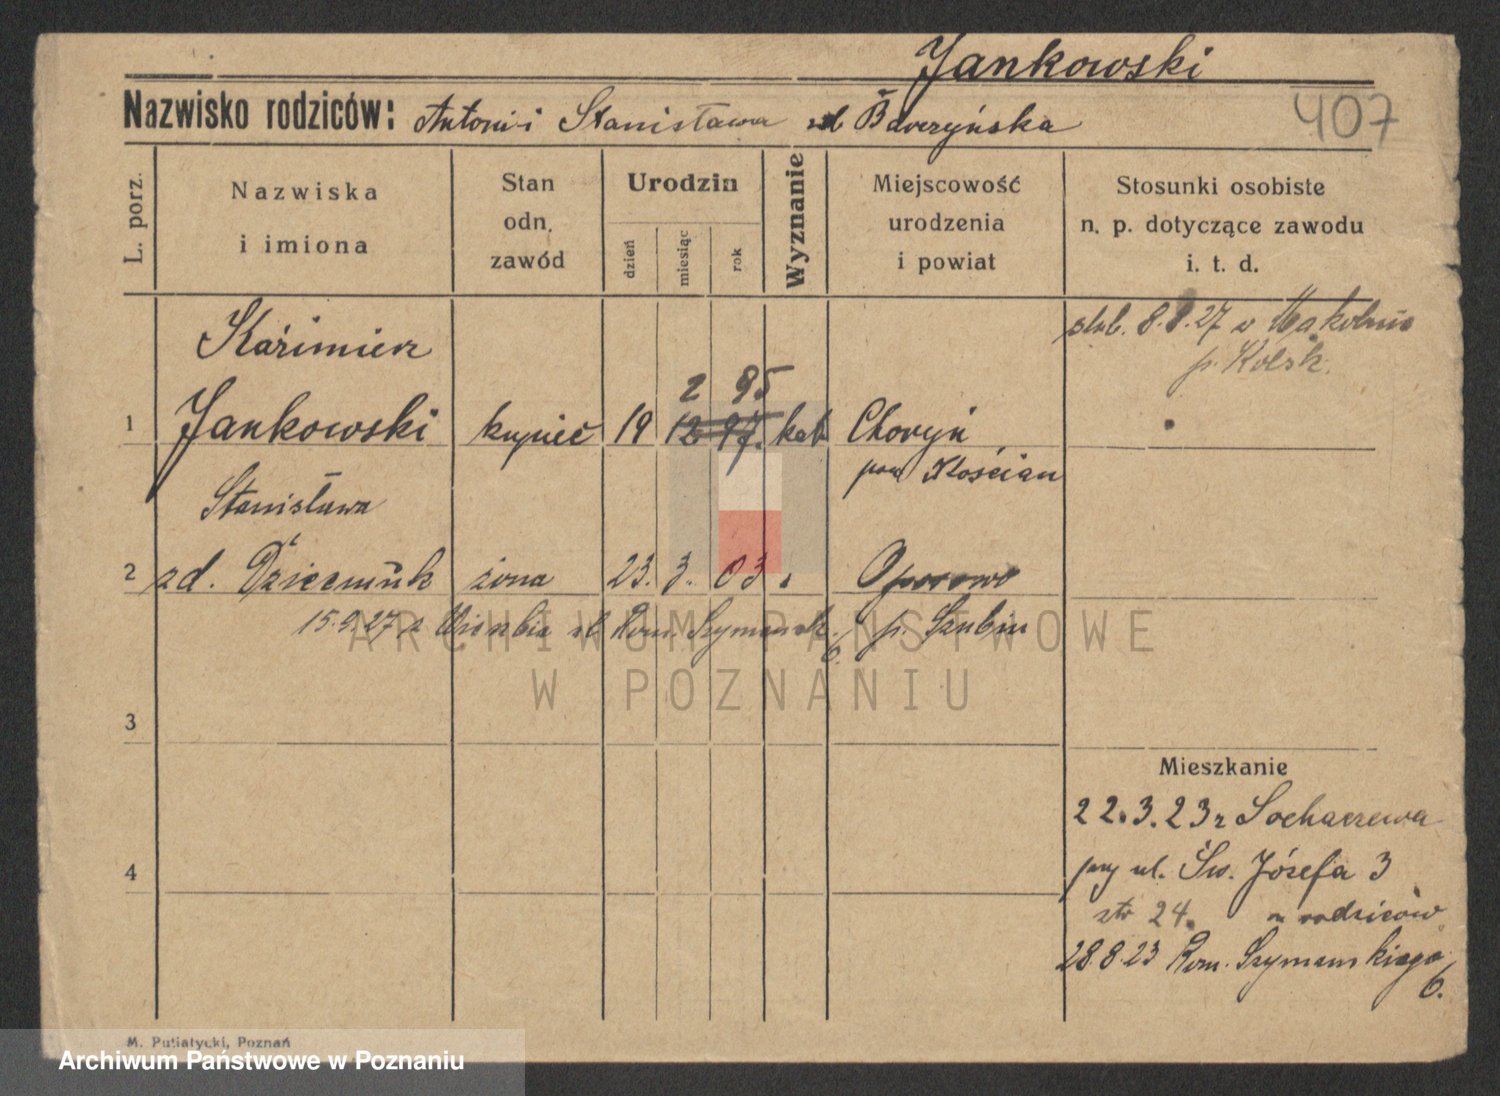 Jankowski
Nazwisko rodziców: Antoni i Stanisława zd
407
L. porz.
Nazwiska i imiona
Stan odn. zawód
Urodzin
dzień
miesiąc
rok
Wyznanie
Miejscowość urodzenia i powiat
Stosunki osobiste n. p. dotyczące zawodu i. t. d.
Kaźimierz
ślub. 8.8.27 w Mąkolnie
p. Kolsk.
2 95
1 Jankowski kupiec 19 12 97. kat Choryń
pow Kościan
Stanisława
2 zd. żona 23. 3. 03 Oporowo
15.9.27 z Rom. Szymańsk. 6. p. Szubin
ARCHIWUM PAŃSTWOWE
W POZNANIU
3
Mieszkanie
22.3.23 z Sochaczewa
4
przy ul. Św. Józefa 3
str 24. rodziców
28.8.23 Rom. Szymańskiego
6.
M. Putiatycki, Poznań
Archiwum Państwowe w Poznaniu